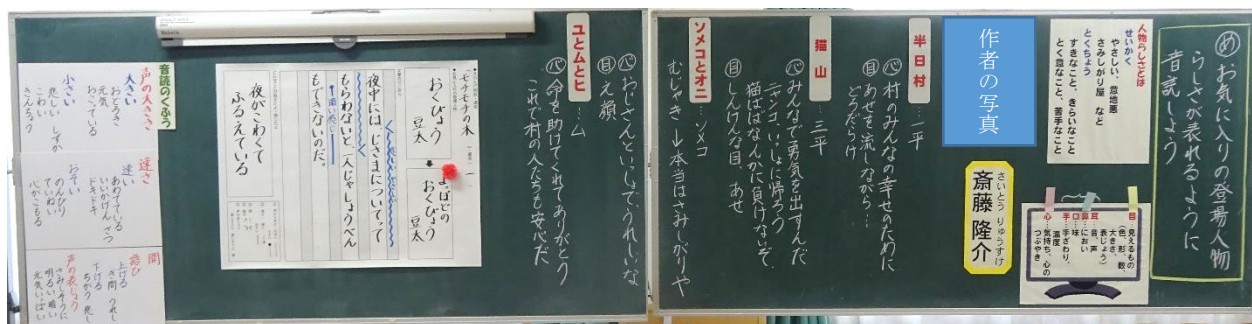 め お気に入りの登場人物
らしさが表れるように
音読しよう
人物らしさとは
せいかく
やさしい、意地悪
さみしがり屋 など
とくちょう
すきなこと、きらいなこと
とく意なこと、苦手なこと
目…見えるもの
(色、形、数、
大きさ、
表じょう)
耳…音、声
鼻…におい
口…味
手…手ざわり、
温度
心…気持ち、心の
つぶやき
作者の写真
さいとう りゅうすけ
斎藤 隆介
半日村 …一平
心 村のみんなの幸せのために
目 あせを流しながら…
どろだらけ
猫山 …三平
心 みんなで勇気を出すんだ
ニャンコ、いっしょに帰ろう
猫ばばなんかに負けないぞ。
目 しんけんな目、あせ
ソメコとオニ …ソメコ
むじゃき→本当はさみしがりや
心 おじさんといっしょで、うれしいな
目 え顔
ユとムとヒ …ム
心 命を助けてくれてありがとう
これで村の人たちも安心だ
モチモチの木
おくびょう
豆太
よっぽどの
おくびょう
豆太
夜中には、じさまについてって
もらわないと、一人じゃしょうべん
もできないのだ。
夜がこわくて
ふるえている
音読のくふう
声の大きさ
大きい
おどろき
元気
おこっている
小さい
悲しい しずか
こわい
きんちょう
速さ
速い
あわてている
いいかげん、ざつ
ドキドキ
おそい
のんびり
ていねい
心がこもる
間
高び
上げる
ぎ問 うれし
下げる
ちがう 悲し
声の表じょう
さみしそうに
明るい 暗い
元気いっぱい